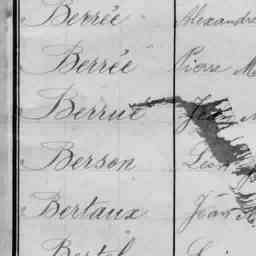 Berrée Alexandre
Berrée Pierre M
Berrue Jean
Berson Léon
Bertaux Jean M